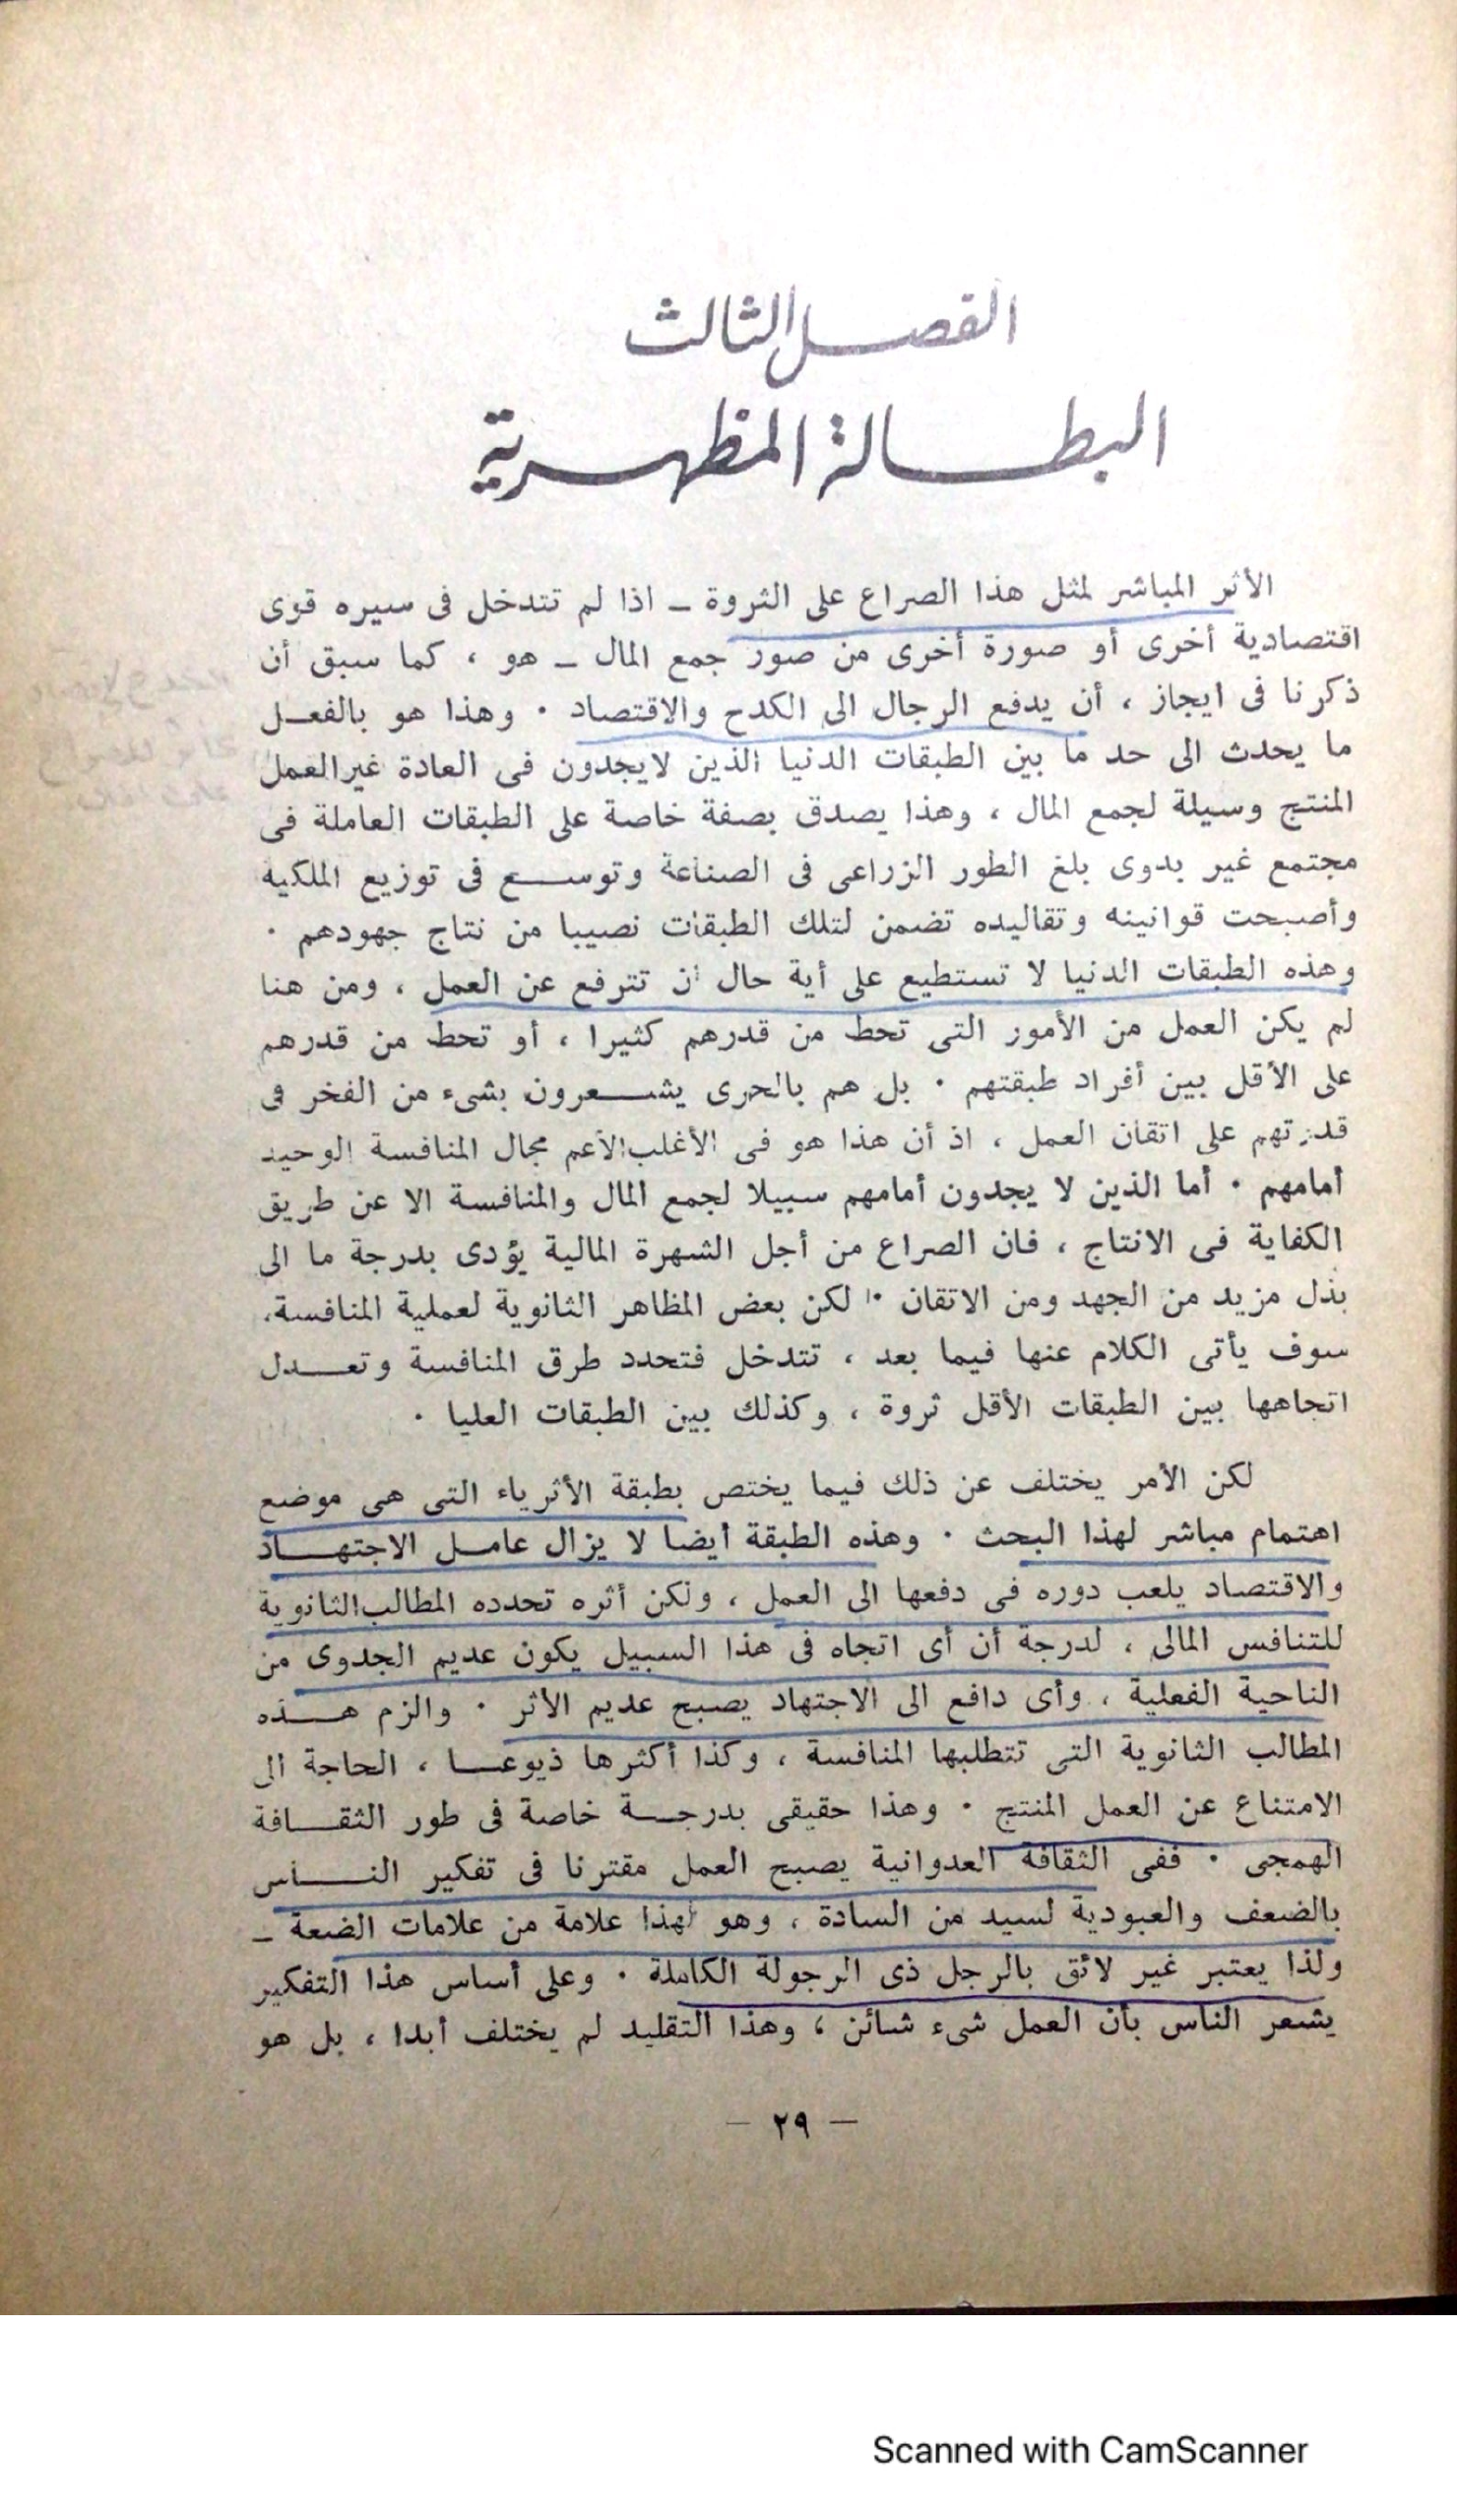 الفصل الثالث
البطالة المظهرية
الأثر المباشر لمثل هذا الصراع على الثروة ـ اذا لم تتدخل فى سيره قوى
اقتصادية أخرى أو صورة أخرى من صور جمع المال ـ هو ، كما سبق أن
ذكرنا فى ايجاز ، أن يدفع الرجال الى الكدح والاقتصاد . وهذا هو بالفعل
ما يحدث الى حد ما بين الطبقات الدنيا الذين لايجدون فى العادة غير العمل
المنتج وسيلة لجمع المال ، وهذا يصدق بصفة خاصة على الطبقات العاملة فى
مجتمع غير بدوى بلغ الطور الزراعى فى الصناعة وتوسع فى توزيع الملكيه
وأصبحت قوانينه وتقاليده تضمن لتلك الطبقات نصيبا من نتاج جهودهم .
وهذه الطبقات الدنيا لا تستطيع على أية حال أن تترفع عن العمل ، ومن هنا
لم يكن العمل من الأمور التى تحط من قدرهم كثيرا ، أو تحط من قدرهم
على الأقل بين أفراد طبقتهم . بل هم بالحرى يشعرون بشىء من الفخر فى
قدرتهم على اتقان العمل ، اذ أن هذا هو فى الأغلب الأعم مجال المنافسة الوحيد
أمامهم . أما الذين لا يجدون أمامهم سبيلا لجمع المال والمنافسة الا عن طريق
الكفاية فى الانتاج ، فان الصراع من أجل الشهرة المالية يؤدى بدرجة ما الى
بذل مزيد من الجهد ومن الاتقان . لكن بعض المظاهر الثانوية لعملية المنافسة،
سوف يأتى الكلام عنها فيما بعد ، تتدخل فتحدد طرق المنافسة وتعدل
اتجاهها بين الطبقات الأقل ثروة ، وكذلك بين الطبقات العليا .
لكن الأمر يختلف عن ذلك فيما يختص بطبقة الأثرياء التى هى موضع
اهتمام مباشر لهذا البحث . وهذه الطبقة أيضا لا يزال عامل الاجتهاد
والاقتصاد يلعب دوره فى دفعها الى العمل ، ولكن أثره تحدده المطالب الثانوية
للتنافس المالى ، لدرجة أن أى اتجاه فى هذا السبيل يكون عديم الجدوى من
الناحية الفعلية ، وأى دافع الى الاجتهاد يصبح عديم الأثر . والزم هذه
المطالب الثانوية التى تتطلبها المنافسة ، وكذا أكثرها ذيوعا ، الحاجة الى
الامتناع عن العمل المنتج . وهذا حقيقى بدرجة خاصة فى طور الثقافة
الهمجى . ففى الثقافة العدوانية يصبح العمل مقترنا فى تفكير الناس
بالضعف والعبودية لسيد من السادة ، وهو لهذا علامة من علامات الضعة ـ
ولذا يعتبر غير لائق بالرجل ذى الرجولة الكاملة . وعلى أساس هذا التفكير
يشعر الناس بأن العمل شىء شائن ، وهذا التقليد لم يختلف أبدا ، بل هو
ـ ٢٩ ـ
Scanned with CamScanner